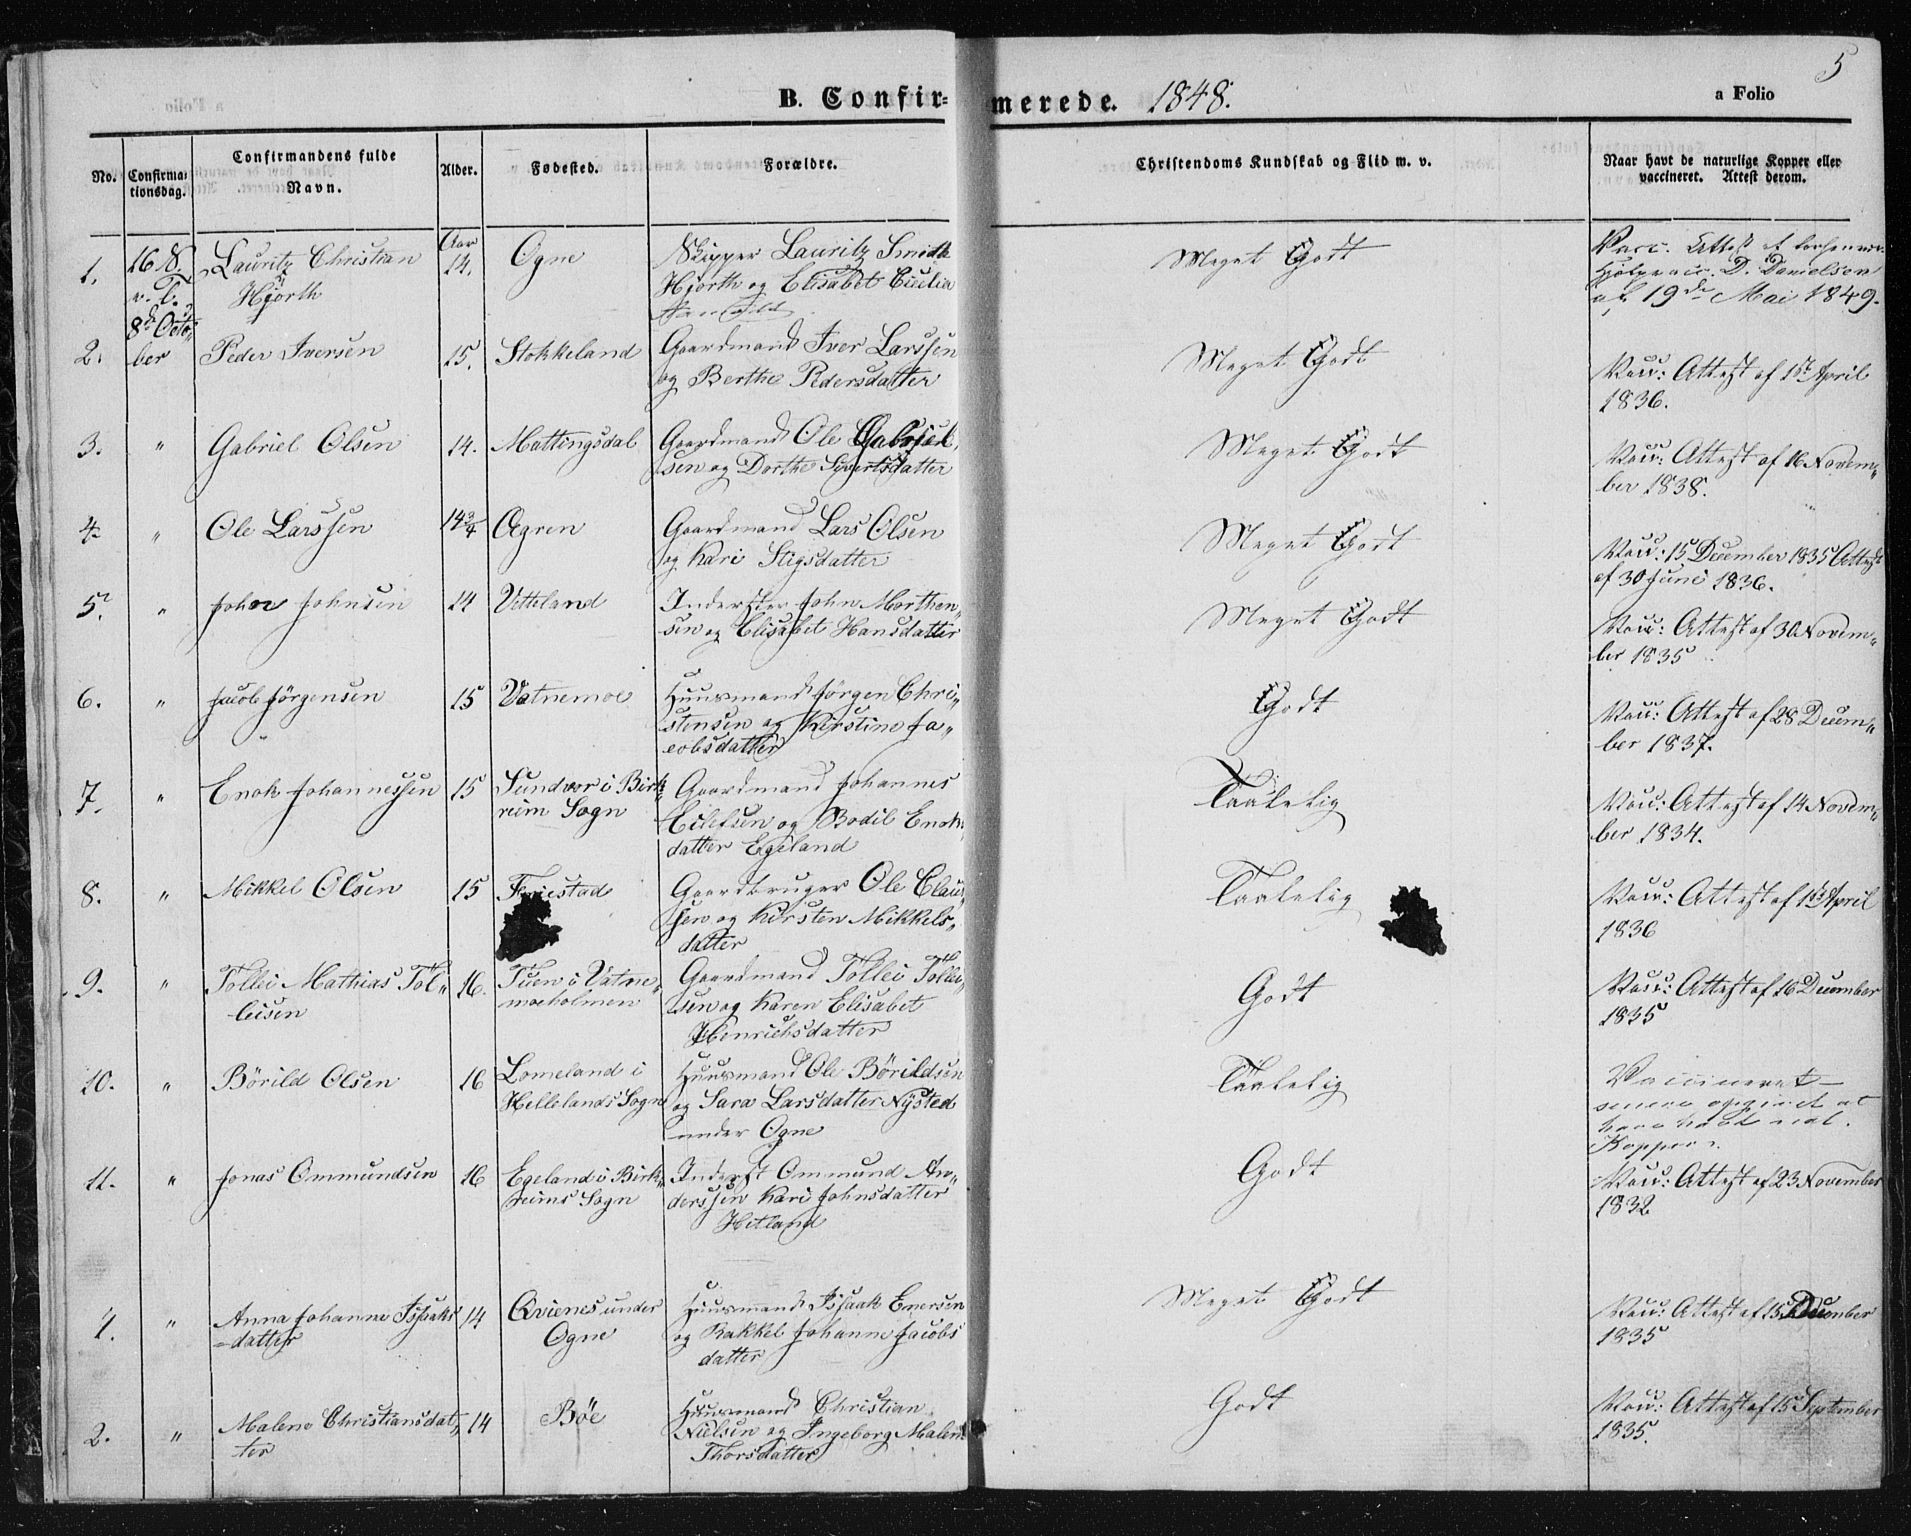 5
B. Confir= merede. 1848.
a Folio
No.
Confirma=
tionsdag.
Confirmandens fulde
Navn.
Alder.
Fødested.
Forældre.
Christendoms Kundskab og Flid m. v.
Naar havt de naturlige Kopper eller
vaccineret. Attest derom.
1.
16 S.
v. T.
8de Octo-
ber
Lauritz Christian
Hjorth
Aar
14.
Ogne
Skipper Lauritz Smith
Hjorth og Elisabet Cecilia
Meget Godt
Vacc. Attest
D. Danielsen
af 19de Mai 1849.
2.
Peder Iversen
15.
Stokkeland
Gaardmand Iver Larssen
og Berthe Pedersdatter
Meget Godt
Vacc: Attest af 1ste April
1836.
3.
"
Gabriel Olsen
14.
Mattingsdal
Gaardmand Ole Gabriel-
sen og Dorthe Sivertsdatter
Meget Godt
Vacc: Attest af 16 Novem-
ber 1838.
4.
"
Ole Larssen
14 3/4
Ægren
Gaardmand Lars Olsen
og Kari Stigsdatter
Meget Godt
Vacc: 15 December 1835 Attest
af 30 Juni 1836.
5.
"
John Johnsen
14
Vetteland
Inderster John Morthen-
sen og Elisabet Hansdatter
Meget Godt
Vacc: Attest af 30 Novem-
ber 1835
6.
"
Jacob Jörgensen
15
Vatnemoe
Huusmand Jörgen Chri-
stensen og Kirstine Ja-
cobsdatter
Godt
Vacc: Attest af 28 Decem-
ber 1837.
7.
"
Enok Johannessen
15
Sundvor i Birk-
reim Sogn
Gaardmand Johannes
Eilefsen og Bodil Enok-
datter Egeland
Taalelig
Vacc: Attest af 14 Novem-
ber 1834.
8.
"
Mikkel Olsen
15
Fuiestad
Gaardbruger Ole Claus-
sen og Kirsten Mikkels-
datter
Taalelig
Vacc: Attest af 1ste April
1836
9.
"
Tollei Mathias Tol-
leisen
16.
Tuen i Vatne-
moeholmen
Gaardmand Tollei Tollei-
sen og Karen Elisabet
Henrichsdatter
Godt
Vacc: Attest af 16 December
1835
10.
"
Börild Olsen
16
Lomeland i
Hellelands Sogn
Huusmand Ole Börildsen
og Sara Larsdatter Nÿsted
under Ogne
Taalelig
Vaccineret –
senere opgivet at
have havt nat.
Kopper.
11.
"
Jonas Ommundsen
16
Egeland i Birk-
reims Sogn
Inderst Ommund An-
derssen Kari Johnsdatter
Hetland
Godt
Vacc: Attest af 23 November
1832
1.
"
Anna Johanne Issaks
-datter
14
Qvienes under
Ogne
Huusmand Issaak Enersen
og Rakkel Johanne Jacobs
datter
Meget Godt
Vacc: Attest af 15 December
1835
2.
"
Malene Christiansdat-
ter
14
Böe
Huusmand Christian
Nielsen og Ingeborg Malene
Thorsdatter
Godt
Vacc: Attest af 15 September
1835.